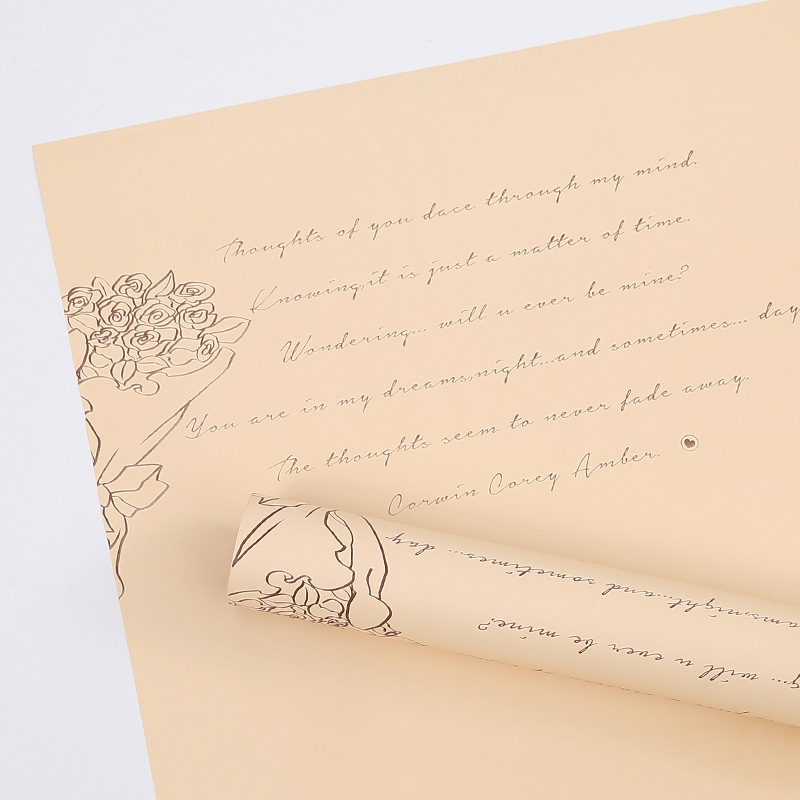 Thoughts of you dace through my mind.
Knowing,it is just a matter of time.
Wondering... will u ever be mine?
You are in my dreams,night...and sometimes... day
The thoughts seem to never fade away.
Corwin Corey Amber.
and sometimes... day
ams,night...
... will u ever be mine?